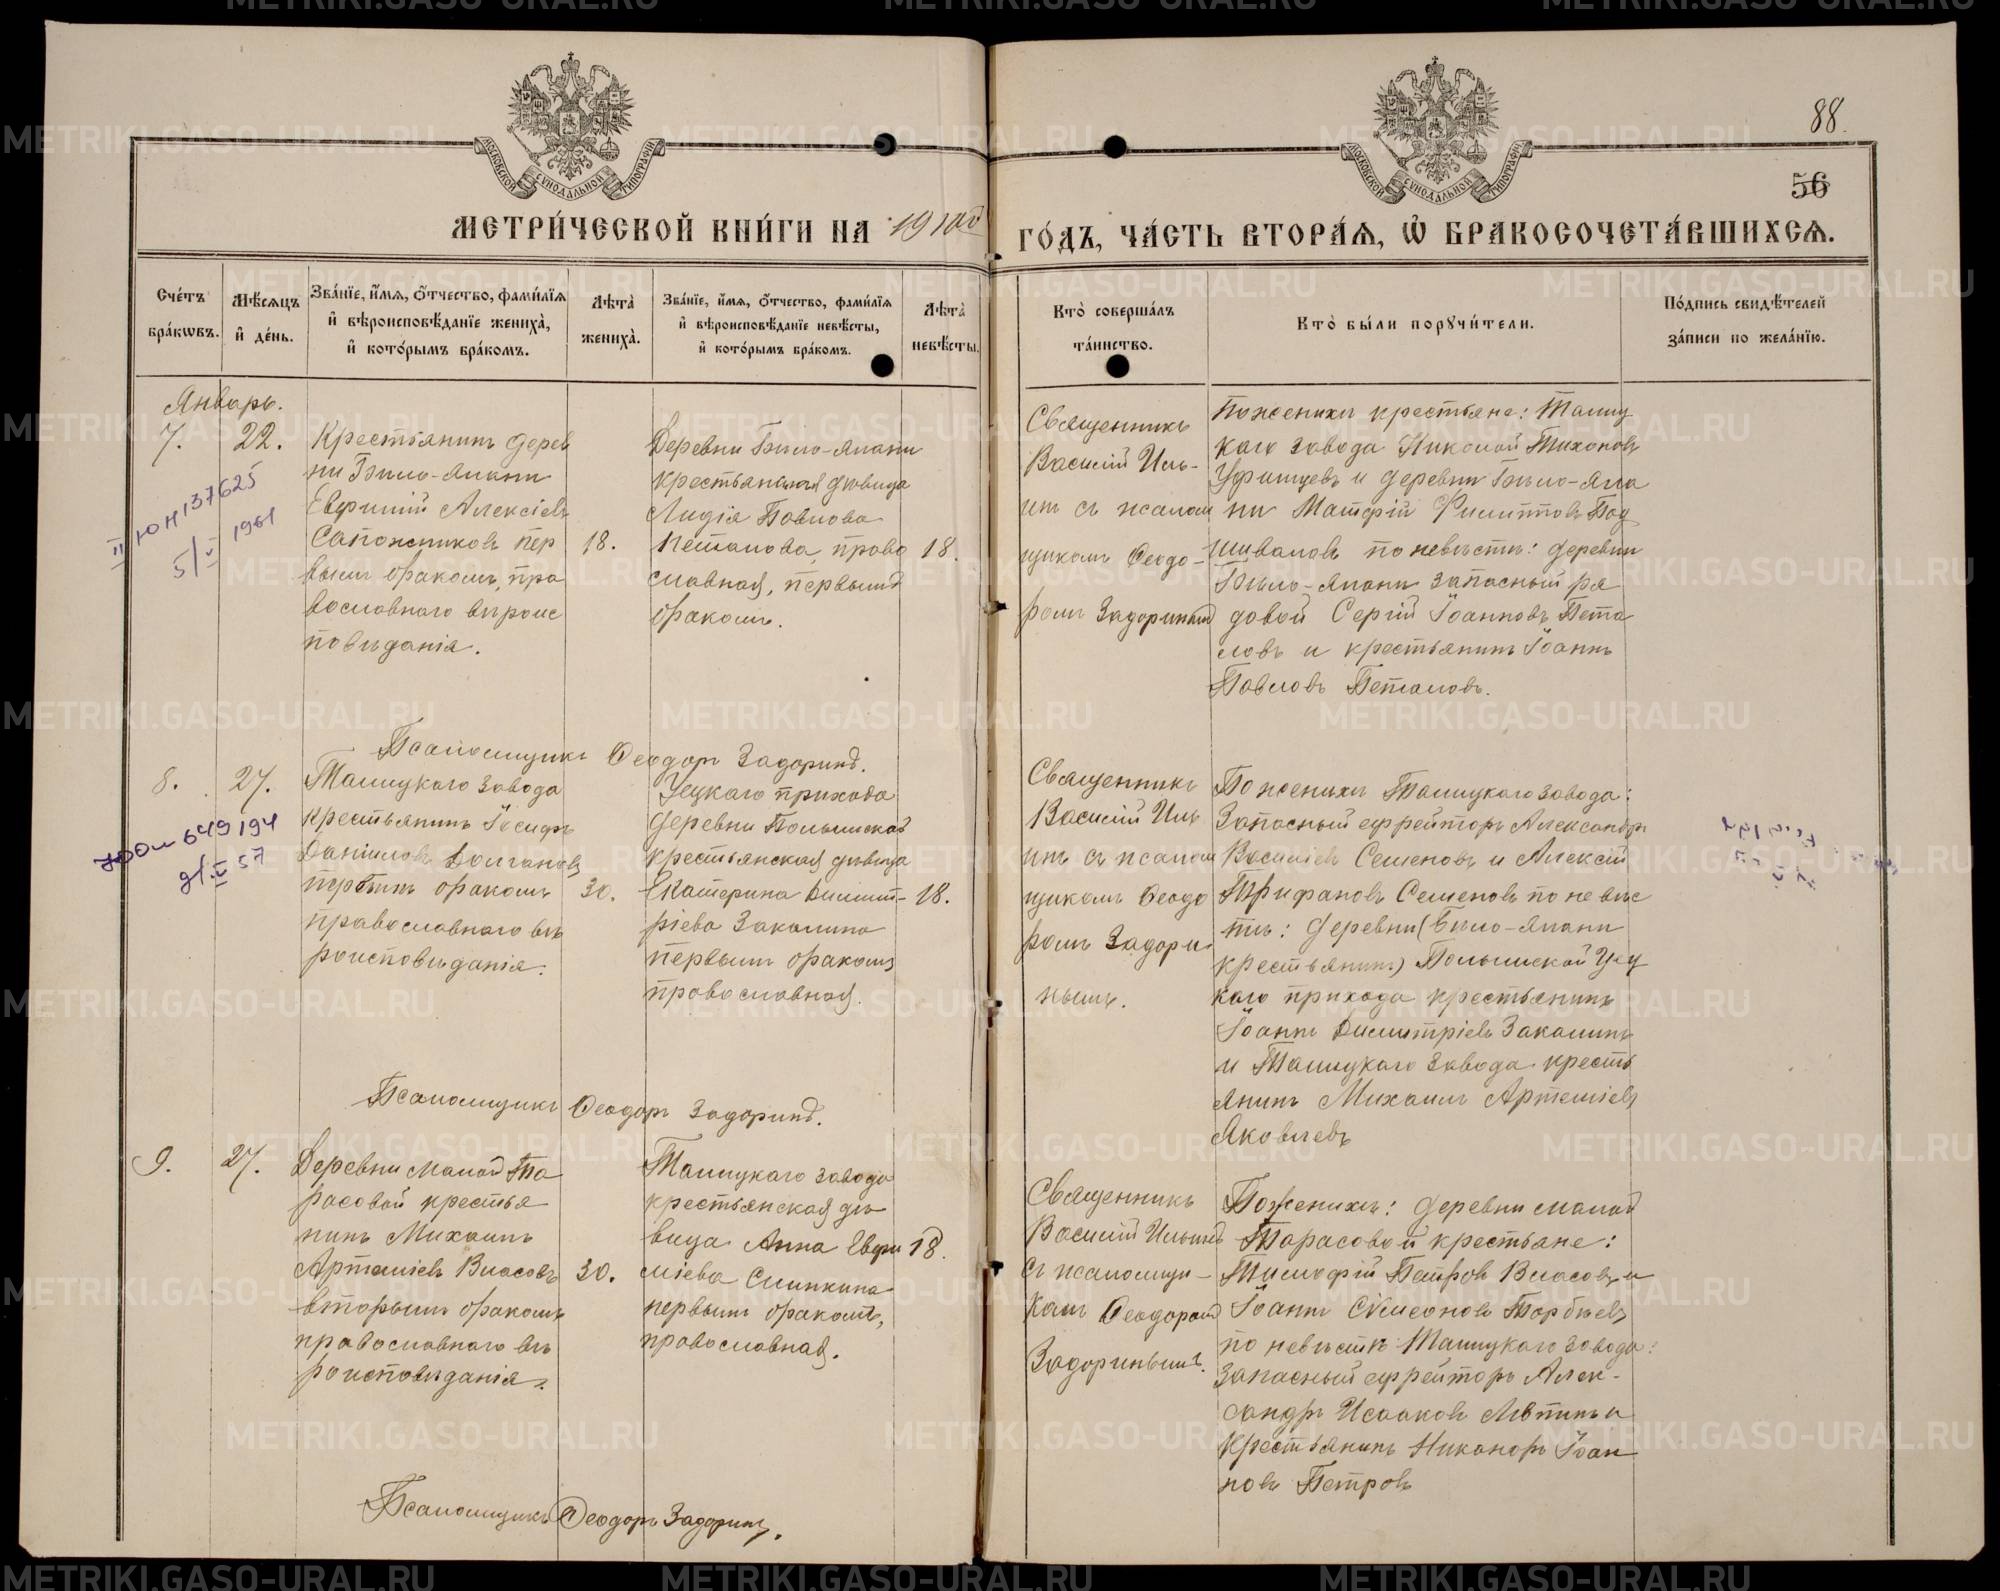 88.
56
МЕТРИ́ЧЕСКОЙ КНИ́ГИ НА 1910й ГО́ДЪ, ЧА́СТЬ ВТОРА́Я, Ѡ БРАКОСОЧЕТА́ВШИХСЯ.
МОСКОВСКОЙ СѴНОДАЛЬНОЙ ТИПОГРАФІИ
МОСКОВСКОЙ СѴНОДАЛЬНОЙ ТИПОГРАФІИ
Сче́тъ
бра́кωвъ.
Мѣ́сяцъ
и҆ де́нь.
Зва́нїе, и҆́мя, ѻ҆́тчество, фами́лїя
и҆ вѣроисповѣ́данїе жениха̀,
и҆ кото́рымъ бра́комъ.
Лѣта̀
жениха̀.
Зва́нїе, и҆́мя, ѻ҆́тчество, фами́лїя
и҆ вѣроисповѣ́данїе невѣ́сты,
и҆ кото́рымъ бра́комъ.
Лѣта̀
невѣ́сты.
Кто̀ соверша́лъ
та́инство.
Кто̀ бы́ли поручи́тели.
По́дпись свидѣ́телей
за́писи по жела́нїю.
Январь.
7.
22.
II ЮН 137625
5/V 1961
Крестьянинъ дерев
ни Бѣло-елани
Евфимій Алексіевъ
Сапожниковъ пер
вымъ бракомъ, пра
вославнаго вѣроис
повѣданія.
18.
Деревни Бѣло-елани
крестьянская дѣвица
Лидія Павлова
Петалова, право
славная, первымъ
бракомъ.
18.
Священникъ
Василій Иль-
инъ съ псалом
щикомъ Ѳеодо-
ромъ Задоринымъ
По женихѣ крестьяне: Талиц
каго завода Николай Тихоновъ
Уфимцевъ и деревни Бѣло-ела
ни Матфій Филипповъ Под
шиваловъ по невѣстѣ: деревни
Бѣло-елани запасный ря
довой Сергій Іоанновъ Пета
ловъ и крестьянинъ Іоаннъ
Павловъ Петаловъ.
Псаломщикъ Ѳеодоръ Задоринъ.
8.
27.
649194
57
Талицкаго завода
крестьянинъ Іосифъ
Даніиловъ Долгановъ
первымъ бракомъ
православнаго вѣ
роисповѣданія.
30.
Уецкаго прихода
деревни Полышской
крестьянская дѣвица
Екатерина Димит-
ріева Закалина
первымъ бракомъ
православная.
18.
Священникъ
Василій Иль
инъ съ псалом
щикомъ Ѳеодо
ромъ Задори
нымъ.
По женихѣ Талицкаго завода:
Запасный ефрейторъ Александръ
Василіевъ Семеновъ и Алексій
Трифановъ Семеновъ по невѣс
тѣ: деревни (Бѣло-елани
крестьянинъ) Полышской Уец
каго прихода крестьянинъ
Іоаннъ Димитріевъ Закалинъ
и Талицкаго завода кресть
янинъ Михаилъ Артеміевъ
Яковлевъ
Псаломщикъ Ѳеодоръ Задоринъ.
9.
27.
Деревни малой Та
расовой крестья
нинъ Михаилъ
Артеміевъ Власовъ
вторымъ бракомъ
православнаго вѣ
роисповѣданія.
30.
Талицкаго завода
крестьянская дѣ
вица Анна Евфи
міева Слинкина
первымъ бракомъ,
православная.
18.
Священникъ
Василій Ильинъ
съ псаломщи-
комъ Ѳеодоромъ
Задоринымъ.
По женихѣ: деревни малой
Тарасовой крестьяне:
Тимофій Петровъ Власовъ и
Іоаннъ Сѵмеоновъ Торбѣевъ
по невѣстѣ Талицкаго завода:
запасный ефрейторъ Алек-
сандръ Исааковъ Лѣпинъ и
крестьянинъ Никаноръ Іоан
новъ Петровъ
Псаломщикъ Ѳеодоръ Задоринъ.
METRIKI.GASO-URAL.RU